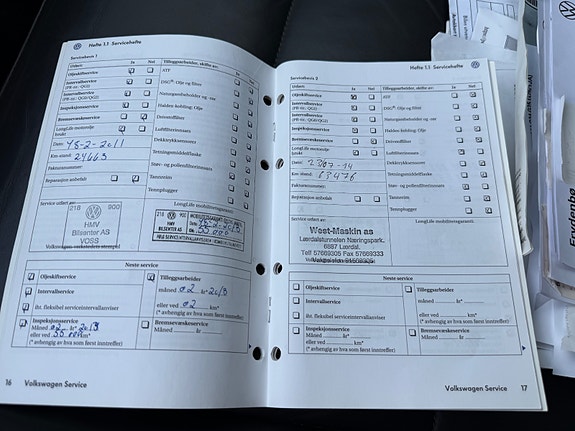 Hefte 1.1 Servicehefte
Servicebevis 1
Utført: Ja Nei
Oljeskiftservice
Intervallservice
(PR-nr.: QG1)
Intervallservice
(PR-nr.: QG0/QG2)
Inspeksjonsservice
Bremsevæskeservice
LongLife motorolje
brukt
Dato: 15-2-2011
Km-stand: 24663
Fakturanummer:
Reparasjon anbefalt
Tilleggsarbeider, skifte av: Ja Nei
ATF
DSG: Olje og filter
Haldex-kobling: Olje
Drivstoffilter
Luftfilterinnsats
Tennrem
Tennplugger
Service utført av:
218 900
HMV
Bilsenter AS
VOSS
218 900
15-2-2013
55.000
Neste service
Oljeskiftservice
Intervallservice
iht. fleksibel serviceintervallanviser
Inspeksjonsservice
Måned 02 år 2013
eller ved 55.000 km*
(* avhengig av hva som først inntreffer)
Tilleggsarbeider
måned 02 år 2013
eller ved 02 km*
Bremsevæskeservice
Måned år
eller ved km*
(* avhengig av hva som først inntreffer)
16 Volkswagen Service
Hefte 1.1 Servicehefte
Servicebevis 2
Utført: Ja Nei
Oljeskiftservice
Intervallservice
(PR-nr.: QG1)
Intervallservice
(PR-nr.: QG0/QG2)
Inspeksjonsservice
Bremsevæskeservice
LongLife motorolje
brukt
Dato:
Km-stand: 63476
Fakturanummer:
Reparasjon anbefalt
Tilleggsarbeider, skifte av: Ja Nei
ATF
DSG: Olje og filter
Haldex-kobling: Olje
Drivstoffilter
Luftfilterinnsats
Dekktrykksensorer
Tetningsmiddelflaske
Støv- og pollenfilterinnsats
Tannrem
Tennplugger
LongLife mobilitetsgaranti:
Service utført av:
West-Maskin as
Lærdalstunnelen Næringspark.
6887 Lærdal.
Telf 57669305 Fax 57669333
Neste service
Oljeskiftservice
Intervallservice
iht. fleksibel serviceintervallanviser
Inspeksjonsservice
Måned år
eller ved km*
(* avhengig av hva som først inntreffer)
Tilleggsarbeider
måned år
eller ved km*
Bremsevæskeservice
Måned år
eller ved km*
(* avhengig av hva som først inntreffer)
Volkswagen Service 17